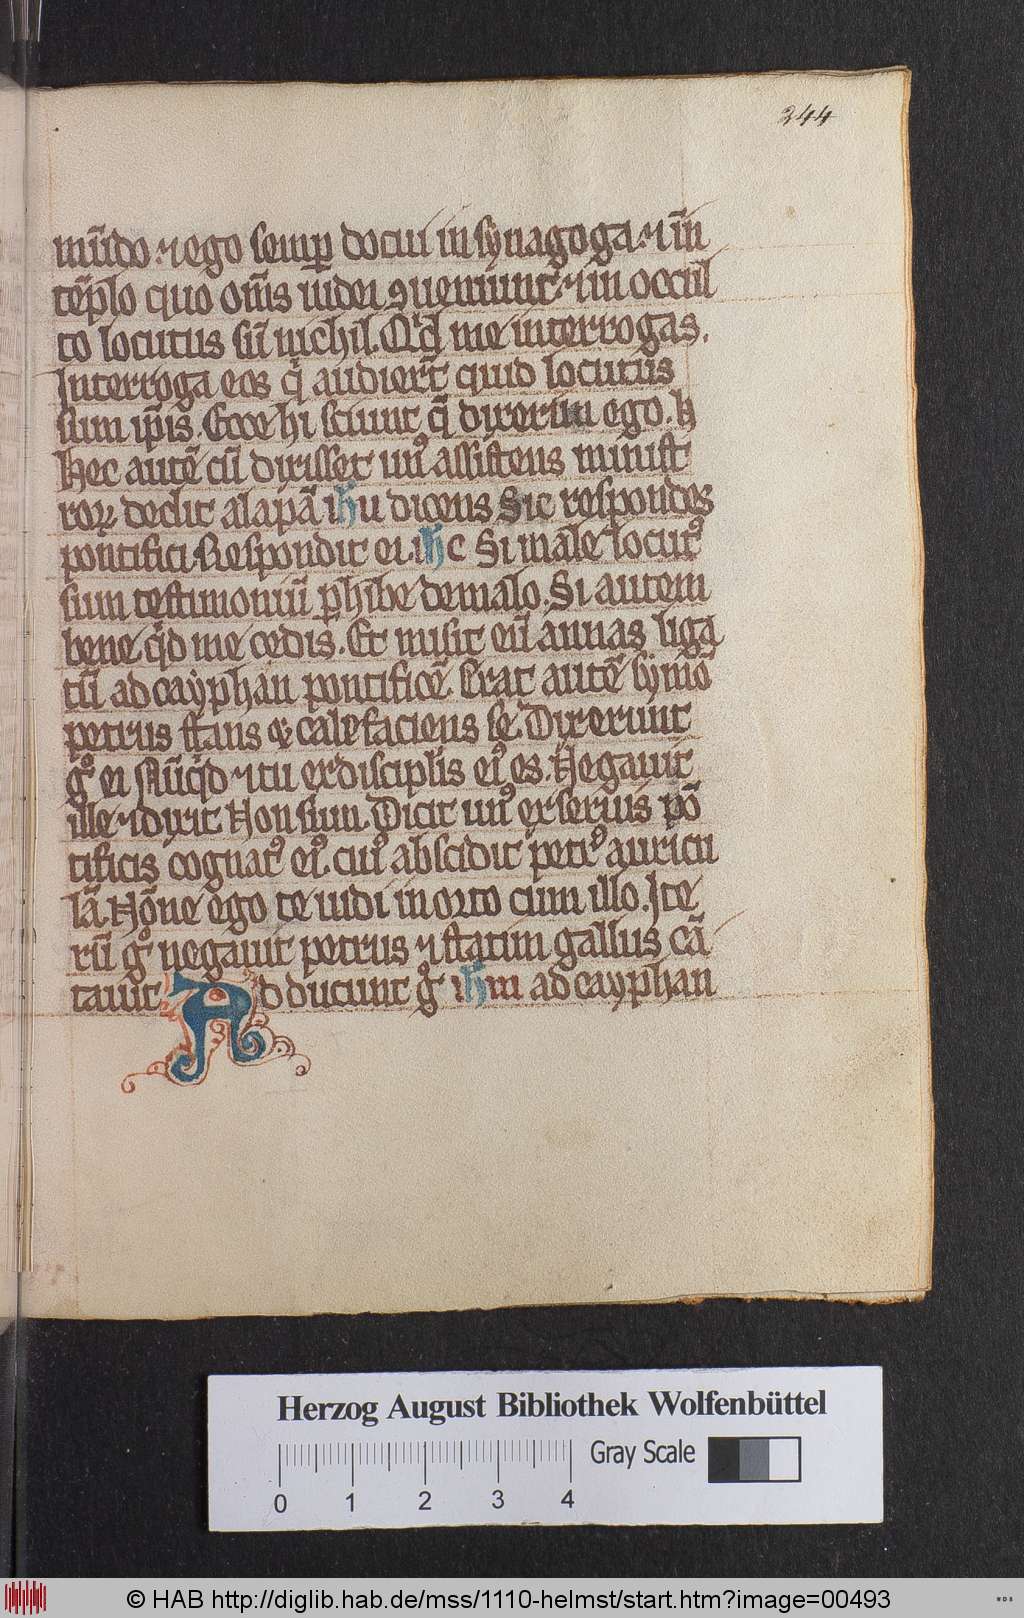 244
mūdo ⁊ ego semp̲ docui in synagoga ⁊ in
tēplo quo om̄s iudei ꝯueniunt ⁊ in occul
to locutus sū nichil. Qͥd me interrogas.
Interroga eos qͥ audierūt quid locutus
sum ip̄is. Ecce hi sciunt q̄ dixerim ego. h
Hec autē cū dixisset unꝰ assistens minist
roꝝ dedit alapā ihu dicens Sic respondes
pontifici. Respondit ei ihc Si male locutꝰ
sum testimoniū p̲hibe de malo. Si autem
bene qͥd me cedis. Et misit eū annas liga
tū ad cayphan pontificē. Erat autē symō
petrus stans ⁊ calefaciens se. Dixerunt
gͦ ei Nūqͥd ⁊ tu ex discipl̄is eiꝰ es. Negauit
ille ⁊ dixit Non sum. Dicit unꝰ ex seruis pō
tificis cognatꝰ eiꝰ. cuiꝰ abscidit petrꝰ auricu
lā. Nōne ego te uidi in orto cum illo. Ite
rū gͦ negauit petrus ⁊ statim gallus cā
tauit Adducunt gͦ ihm ad cayphan
Herzog August Bibliothek Wolfenbüttel
Gray Scale
0 1 2 3 4
© HAB http://diglib.hab.de/mss/1110-helmst/start.htm?image=00493